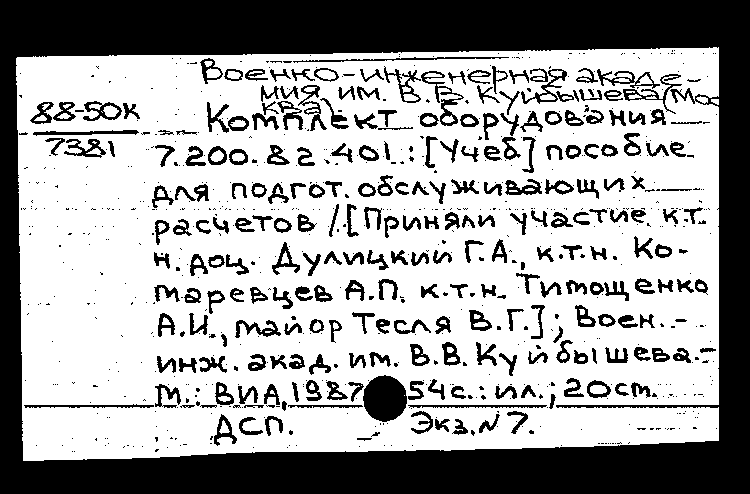 Военно-инженерная акаде-
мия им. В.В. Куйбышева (Мос
ква)
88-50К
7381
Комплект оборудования
7.200.82.401.: [Учеб] пособие
для подгот. обслуживающих
расчетов / [Приняли участие к.т.
н. доц. Дулицкий Г.А., к.т.н. Ко-
маревцев А.П. к.т.н. Тимощенко
А.И., майор Тесля В.Г.]; Воен.-
инж. акад. им. В.В. Куйбышева.-
М.: ВИА, 1987 54с.: ил.; 20ст.
ДСП. Экз. N 7.